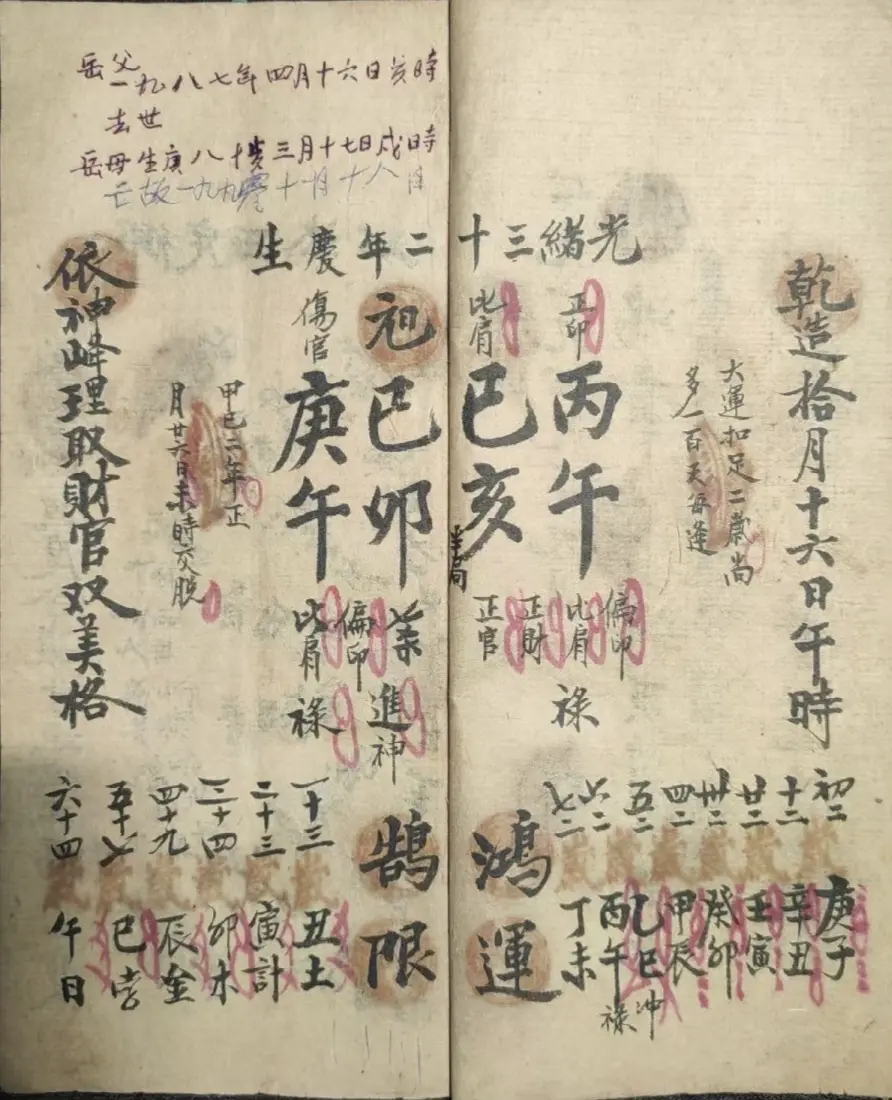 乾造拾月十六日午時
大運扣足二歲尚
多一百天每逢
光緒三十二年慶生
正印
丙午
偏印
比肩
禄
比肩
巳亥
正財
正官
巳卯
進神
偏印
傷官
庚午
比肩
禄
甲巳二年正
月廿六日未時交脱
依神峰理取財官双美格
鴻運
初二 歲 庚子
十二 歲 辛丑
廿二 歲 壬寅
卅二 歲 癸卯
四二 歲 甲辰
五二 歲 乙巳 冲
六二 歲 丙午 禄
七二 歲 丁未
鹄限
一十三 歲 丑土
二十三 歲 寅計
三十四 歲 卯木
四十九 歲 辰金
五十七 歲 巳孛
六十四 歲 午日
岳父一九八七年四月十六日亥時
去世
岳母生庚八十歲三月十七日戌時
亡故一九九零十一月十八日